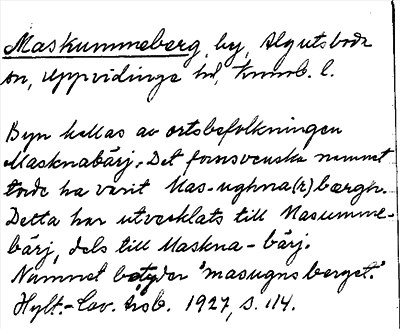 Maskummeberg, by, Algutsboda
sn, Uppvidinge hd, Kronob. l.
Byn kallas av ortsbefolkningen
Masknabärj. Det fornsvenska namnet
torde ha varit Mas-ughna(r)bærgh.
Detta har utvecklats till Masumme-
bärj, dels till Maskna-bärj.
Namnet betyder "masugnsberget."
Hylt.-Cav. årsb. 1927, s. 114.